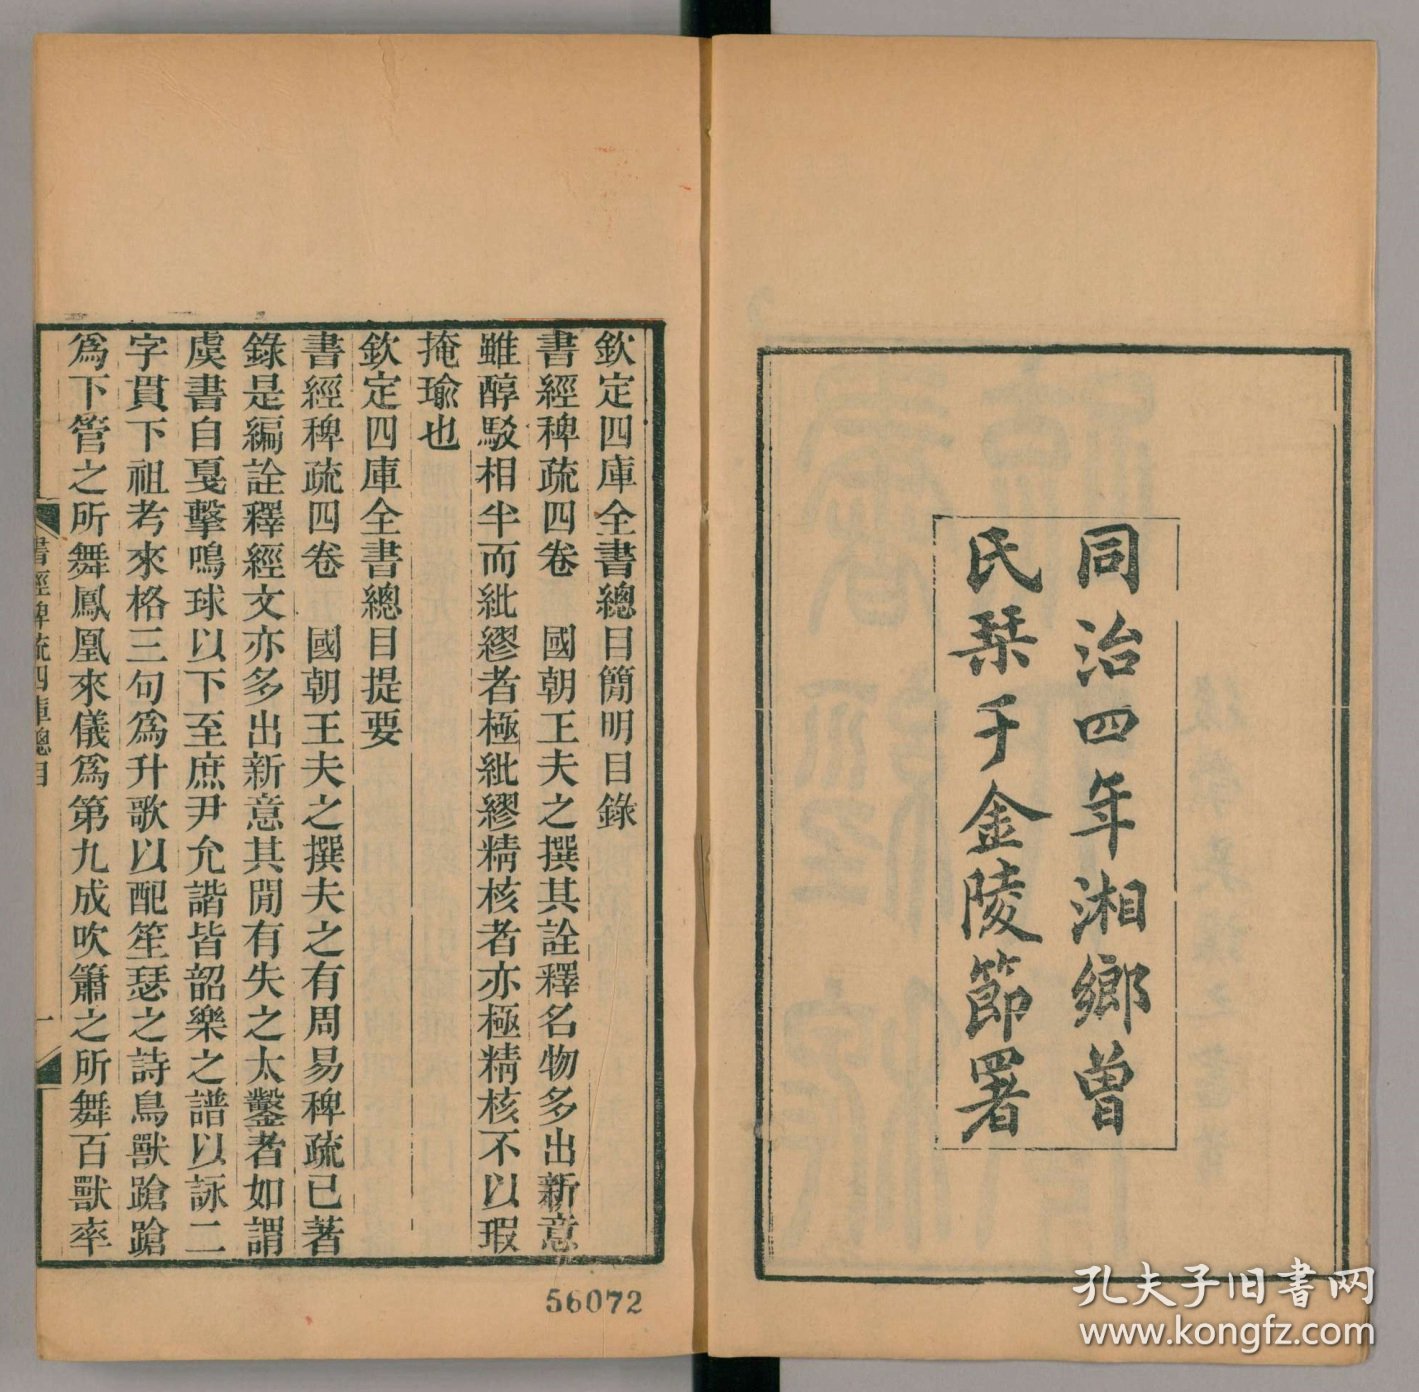 同治四年湘鄉曾
氏栞于金陵節署
欽定四庫全書總目簡明目錄
書經稗疏四卷 國朝王夫之撰其詮釋名物多出新意
雖醇駁相半而紕繆者極紕繆精核者亦極精核不以瑕
掩瑜也
欽定四庫全書總目提要
書經稗疏四卷 國朝王夫之撰夫之有周易稗疏已著
錄是編詮釋經文亦多出新意其閒有失之太鑿者如謂
虞書自戛擊鳴球以下至庶尹允諧皆韶樂之譜以詠二
字貫下祖考來格三句爲升歌以配笙瑟之詩鳥獸蹌蹌
爲下管之所舞鳳凰來儀爲第九成吹簫之所舞百獸率
書經稗疏四庫總目
一
56072
孔夫子旧书网
www.kongfz.com